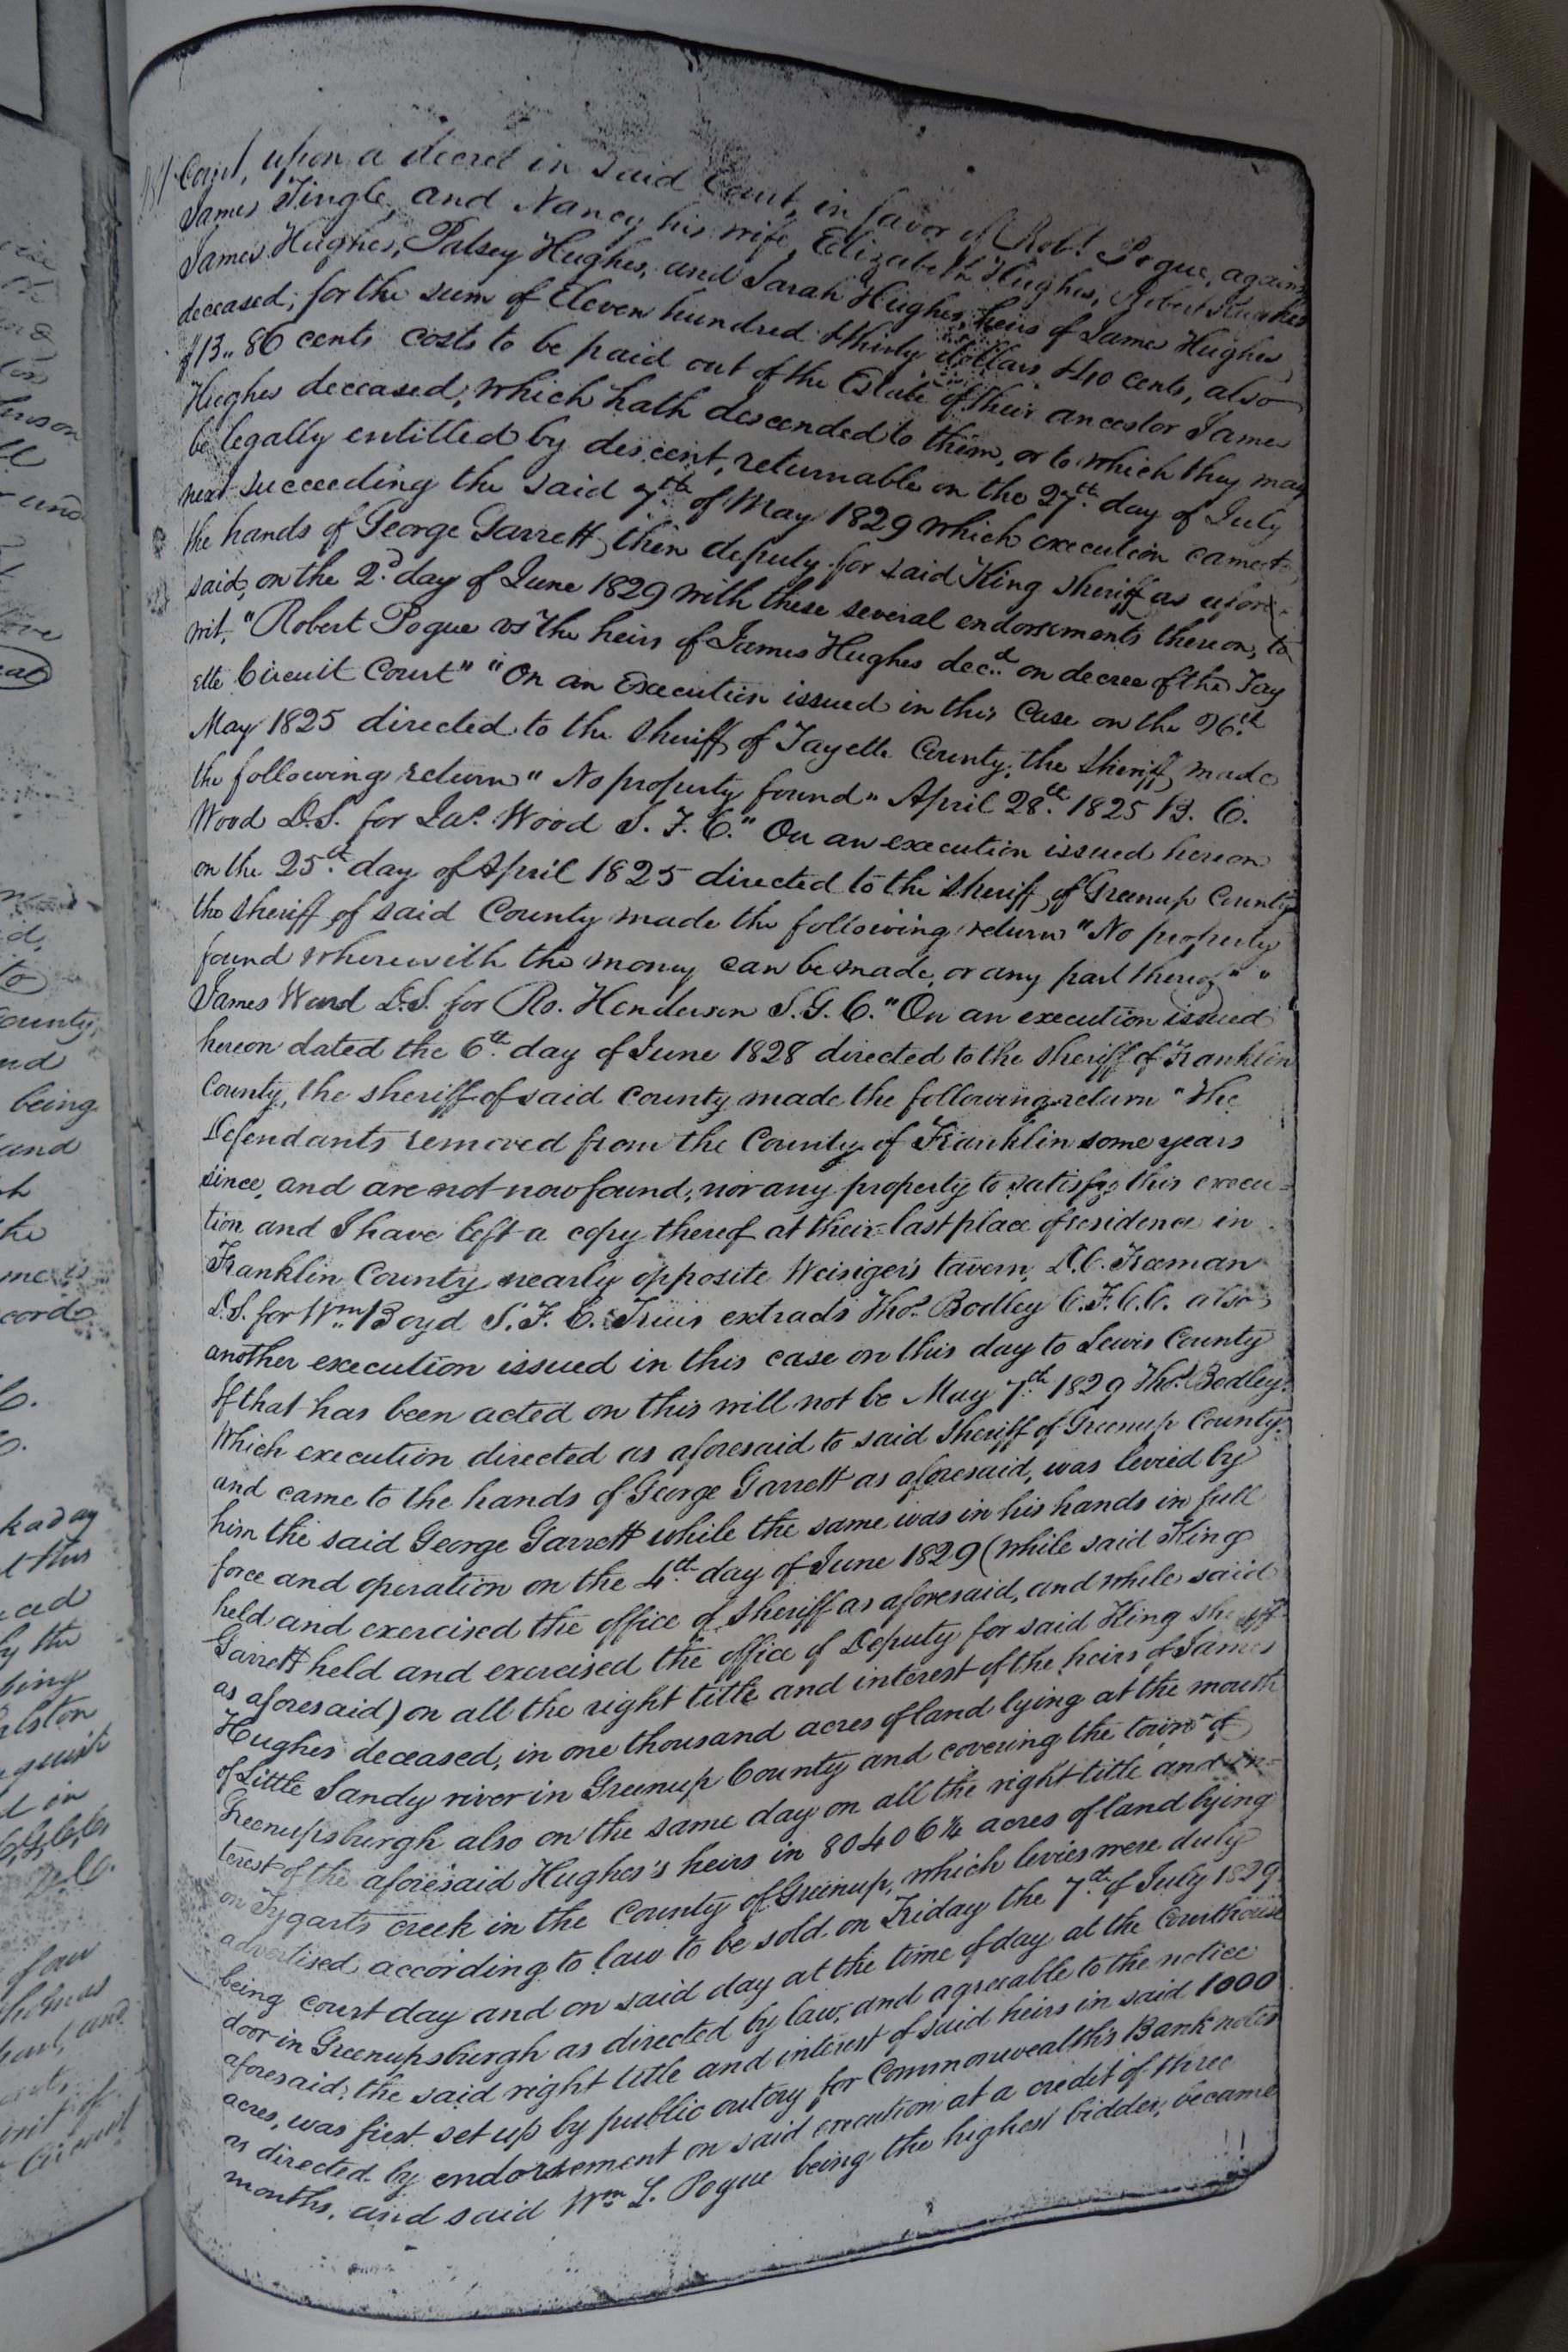 Court, upon a decree in said Court, in favor of Robt. Pogue, against
James Tingle, and Nancy his wife, Elizabeth Hughes, Robert Hughes
James Hughes, Patsey Hughes, and Sarah Hughes, heirs of James Hughes
deceased, for the sum of Eleven hundred & thirty dollars & 40 cents, also
$13.. 86 cents costs to be paid out of the Estate of their ancestor James
Hughes deceased, which hath descended to them, or to which they may
be legally entitled by descent, returnable on the 27th. day of July
next succeeding the said 7th. of May 1829 which execution came to
the hands of George Garrett, then deputy for said King Sheriff as afore-
said, on the 2d. day of June 1829 with these several endorsements thereon, to
wit, "Robert Pogue vs the heirs of James Hughes decd. on decree of the Fay
ette Circuit Court" "On an Execution issued in this Case on the 26th
May 1825 directed to the Sheriff of Fayette County, the Sheriff made
the following return" No property found" April 28th. 1825 B. C.
Wood D.S. for Jas. Wood S. F. C." On an execution issued hereon
on the 25th. day of April 1825 directed to the Sheriff of Greenup County
the Sheriff of said County made the following return "No property
found wherewith the money can be made, or any part thereof" "
James Ward D.S. for Ro. Henderson S.G.C." On an execution issued
hereon dated the 6th. day of June 1828 directed to the Sheriff of Franklin
County, the sheriff of said County made the following return "The
Defendants removed from the County of Franklin some years
since, and are not now found, nor any property to satisfy this execu=
tion, and I have left a copy thereof at their last place of residence in
Franklin County nearly opposite Weisiger's tavern, D.C. Freeman
D.S. for Wm. Boyd S. F. C. extracts Thos. Bodley C.F.C.C. also
another execution issued in this case on this day to Lewis County
If that has been acted on this will not be May 7th. 1829 Thos. Bodley.
Which execution directed as aforesaid to said Sheriff of Greenup County
and came to the hands of George Garrett as aforesaid, was levied by
him the said George Garrett while the same was in his hands in full
force and operation on the 4th. day of June 1829 (while said King
held and exercised the office of Sheriff as aforesaid, and while said
Garrett held and exercised the office of Deputy for said King sheriff
as aforesaid) on all the right title and interest of the heirs of James
Hughes deceased, in one thousand acres of land lying at the mouth
of Little Sandy river in Greenup County and covering the town of
Greenupsburgh also on the same day on all the right title and in=
terest of the aforesaid Hughes's heirs in 80406¼ acres of land lying
on Tygarts creek in the County of Greenup, which levies were duly
advertised according to law to be sold on Friday the 7th. of July 1829
being court day and on said day at the time of day at the Courthouse
door in Greenupsburgh as directed by law, and agreeable to the notice
aforesaid, the said right title and interest of said heirs in said 1000
acres, was first set up by public outcry for Commonwealth's Bank notes
as directed by endorsement on said execution at a credit of three
months, and said Wm L. Pogue being the highest bidder, became